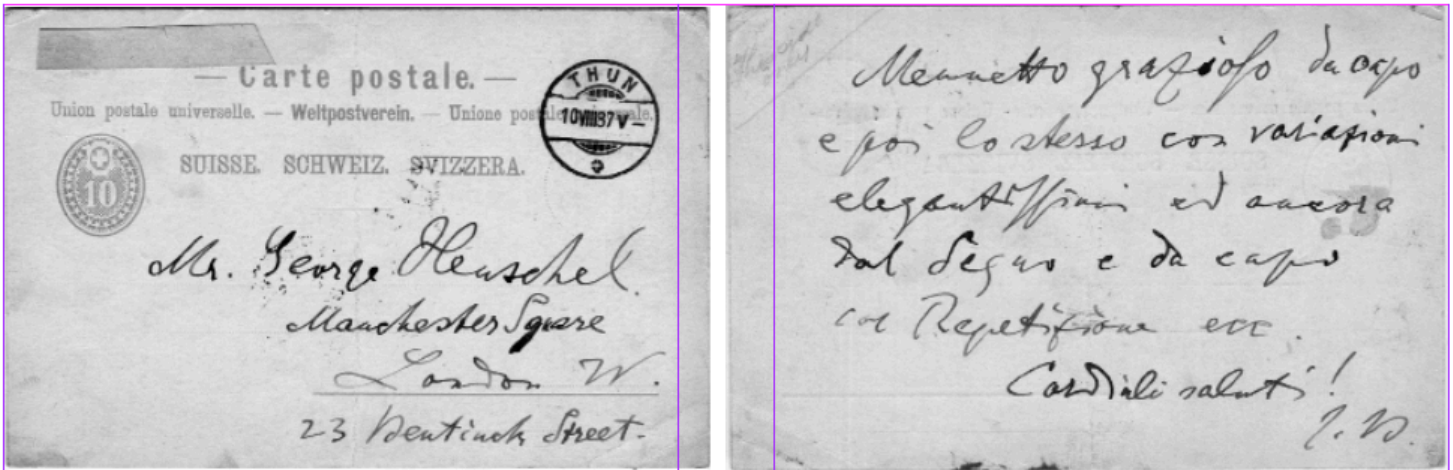 — Carte postale. —
Union postale universelle. — Weltpostverein. — Unione postale universale.
SUISSE. SCHWEIZ. SVIZZERA.
10
THUN
10 VIII 87 V —
Mr. George Henschel.
Manchester Square
London W.
23 Bentinck Street.
Mennetto grazioso da capo
e poi lo stesso con variazioni
elegantissimi ed ancora
dal Segno e da capo
con Repetizione ecc.
Cordiali saluti!
J. B.